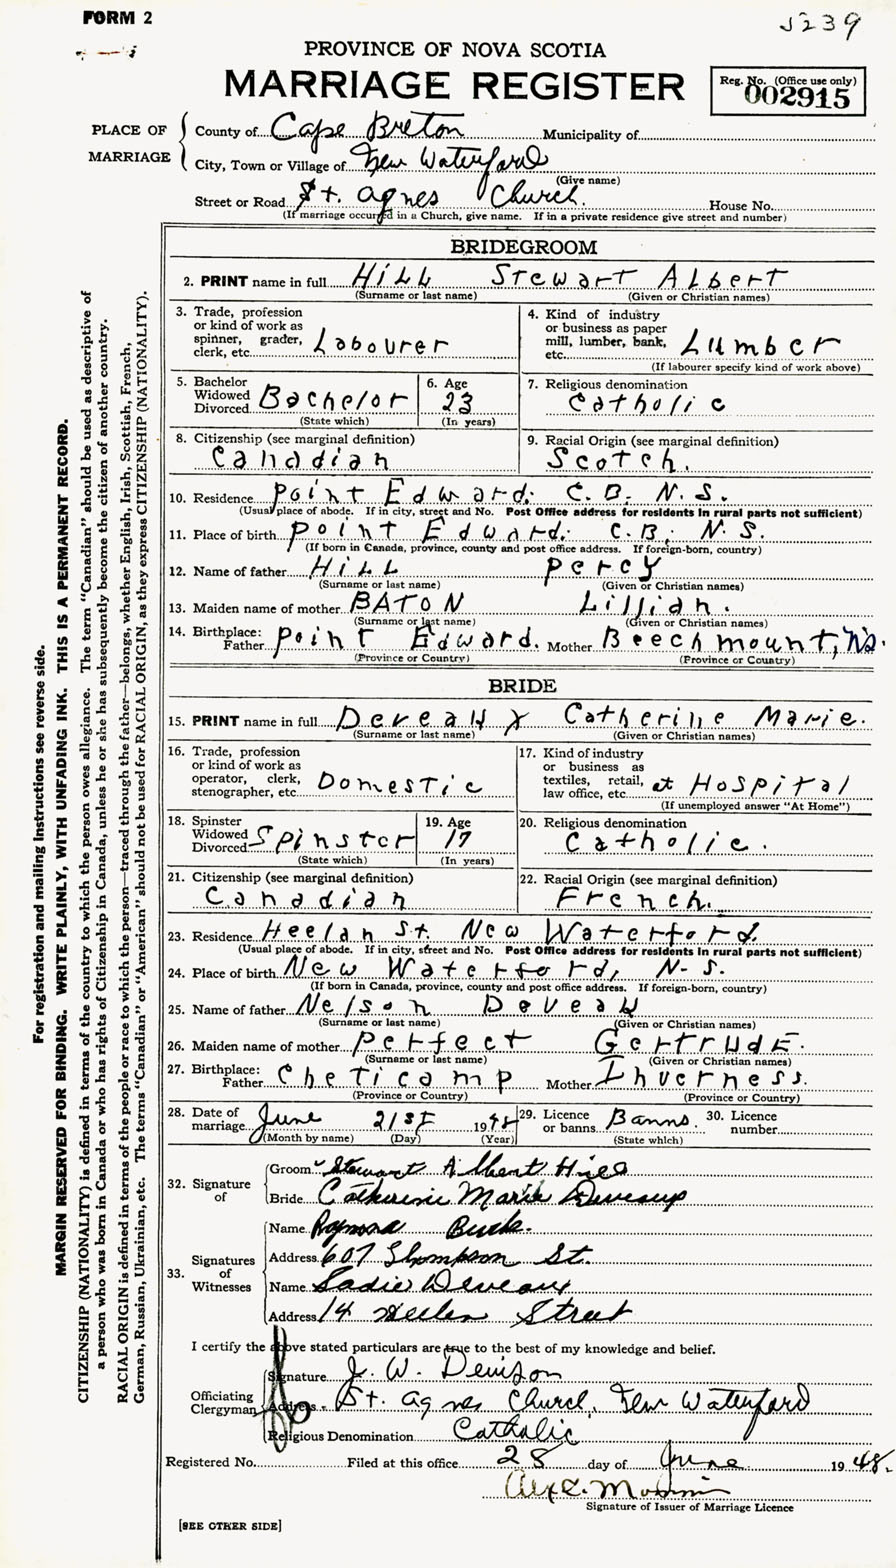 FORM 2
5239
PROVINCE OF NOVA SCOTIA
MARRIAGE REGISTER
Reg. No. (Office use only)
002915
PLACE OF MARRIAGE
County of Cape Breton Municipality of
City, Town or Village of New Waterford
(Give name)
Street or Road St. Agnes Church. House No.
(If marriage occurred in a Church, give name. If in a private residence give street and number)
BRIDEGROOM
2. PRINT name in full HILL Stewart Albert
(Surname or last name) (Given or Christian names)
3. Trade, profession or kind of work as spinner, grader, clerk, etc. Labourer
4. Kind of industry or business as paper mill, lumber, bank, etc. Lumber
(If labourer specify kind of work above)
5. Bachelor Widowed Divorced Bachelor
(State which)
6. Age 23
(In years)
7. Religious denomination Catholic
8. Citizenship (see marginal definition) Canadian
9. Racial Origin (see marginal definition) Scotch.
10. Residence Point Edward. C. B. N. S.
(Usual place of abode. If in city, street and No. Post Office address for residents in rural parts not sufficient)
11. Place of birth Point Edward. C. B. N. S.
(If born in Canada, province, county and post office address. If foreign-born, country)
12. Name of father HILL Percy
(Surname or last name) (Given or Christian names)
13. Maiden name of mother BATON Lillian.
(Surname or last name) (Given or Christian names)
14. Birthplace: Father Point Edward. Mother Beechmount, N.S.
(Province or Country) (Province or Country)
BRIDE
15. PRINT name in full Deveaux Catherine Marie.
(Surname or last name) (Given or Christian names)
16. Trade, profession or kind of work as operator, clerk, stenographer, etc Domestic
17. Kind of industry or business as textiles, retail, law office, etc. at Hospital
(If unemployed answer "At Home")
18. Spinster Widowed Divorced Spinster
(State which)
19. Age 17
(In years)
20. Religious denomination Catholic.
21. Citizenship (see marginal definition) Canadian
22. Racial Origin (see marginal definition) French.
23. Residence Heelan St. New Waterford.
(Usual place of abode. If in city, street and No. Post Office address for residents in rural parts not sufficient)
24. Place of birth New Waterford, N.S.
(If born in Canada, province, county and post office address. If foreign-born, country)
25. Name of father Nelson Deveau
(Surname or last name) (Given or Christian names)
26. Maiden name of mother Perfect Gertrude.
(Surname or last name) (Given or Christian names)
27. Birthplace: Father Cheticamp Mother Inverness.
(Province or Country) (Province or Country)
28. Date of marriage June 21st 1948
(Month by name) (Day) (Year)
29. Licence or banns Banns.
(State which)
30. Licence number
32. Signature of
Groom Stewart Albert Hill
Bride Catherine Marie Deveaux
33. Signatures of Witnesses
Name Raymond
Address 607 Thompson St.
Name Sadie Deveaux
Address 14 Heelan Street
I certify the above stated particulars are true to the best of my knowledge and belief.
Officiating Clergyman
Signature J. W. Denison
Address St. Agnes Church, New Waterford
Religious Denomination Catholic
Registered No. Filed at this office 28 day of June 1948.
Signature of Issuer of Marriage Licence
[SEE OTHER SIDE]
For registration and mailing instructions see reverse side.
MARGIN RESERVED FOR BINDING. WRITE PLAINLY, WITH UNFADING INK. THIS IS A PERMANENT RECORD.
CITIZENSHIP (NATIONALITY) is defined in terms of the country to which the person owes allegiance. The term "Canadian" should be used as descriptive of
a person who was born in Canada or who has rights of Citizenship in Canada, unless he or she has subsequently become the citizen of another country.
RACIAL ORIGIN is defined in terms of the people or race to which the person—traced through the father—belongs, whether English, Irish, Scottish, French,
German, Russian, Ukrainian, etc. The terms "Canadian" or "American" should not be used for RACIAL ORIGIN, as they express CITIZENSHIP (NATIONALITY).